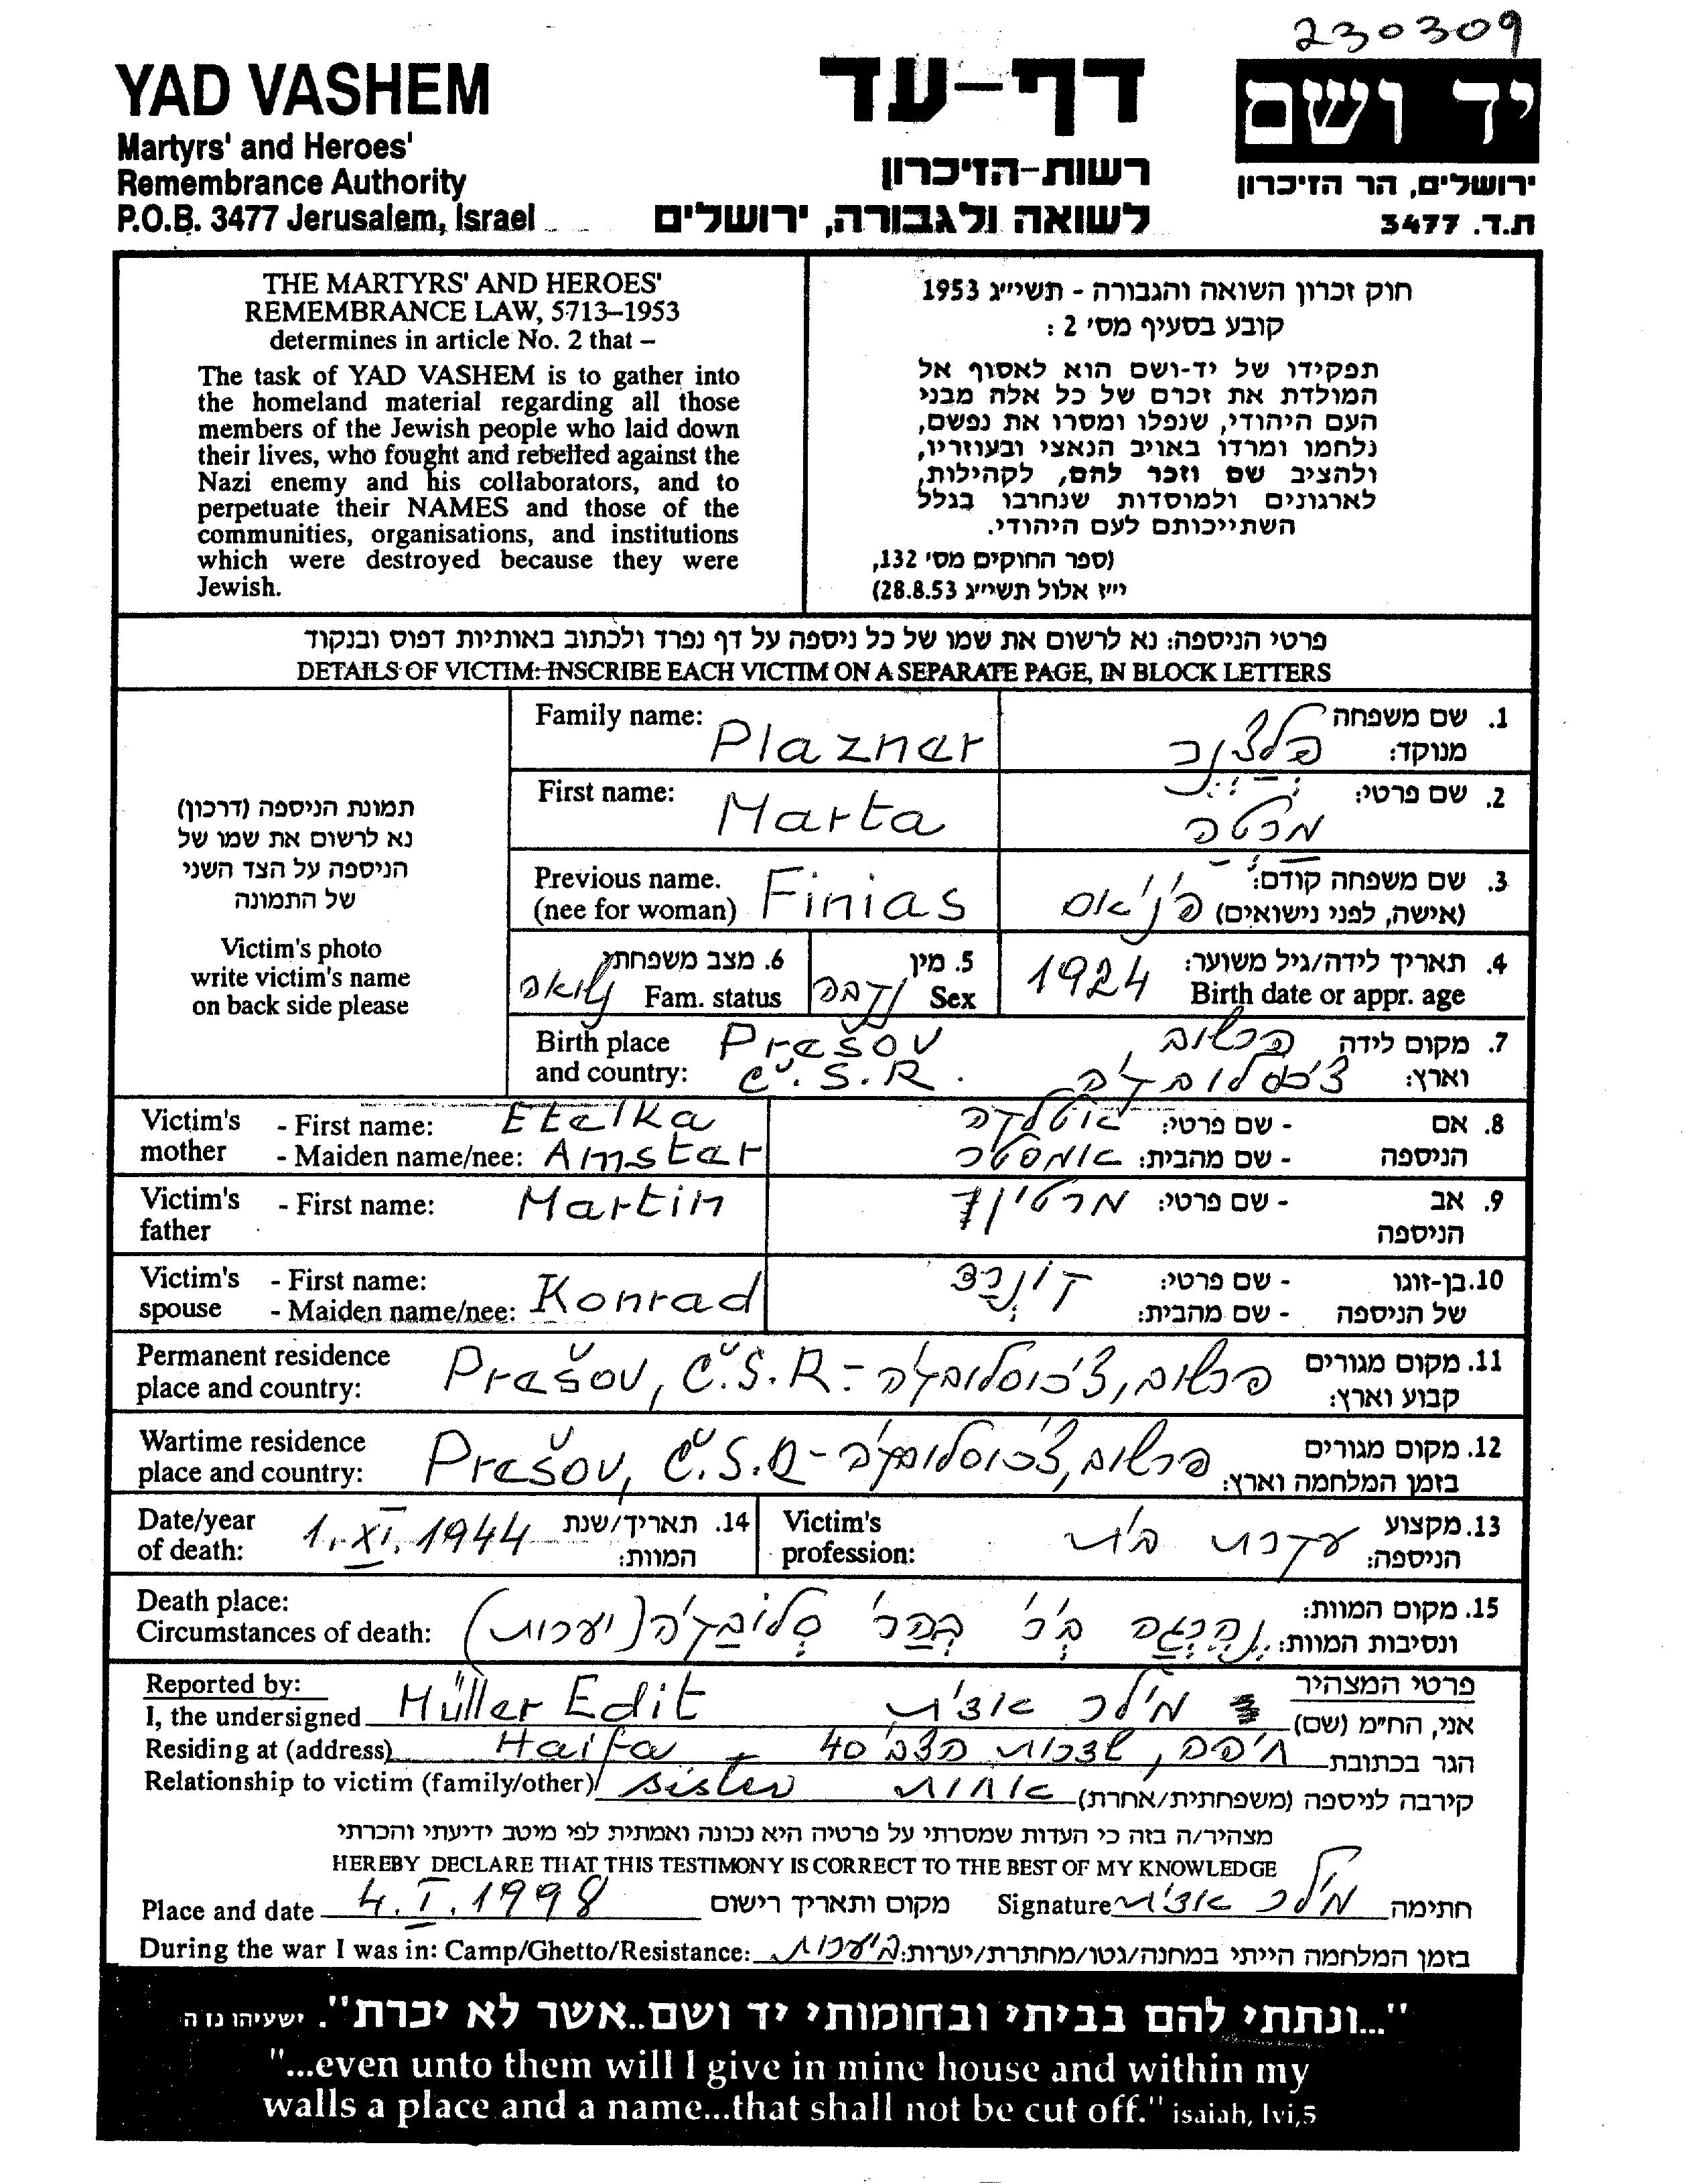 230309
YAD VASHEM
Martyrs' and Heroes'
Remembrance Authority
P.O.B. 3477 Jerusalem, Israel
דף-עד
רשות-הזיכרון
לשואה ולגבורה, ירושלים
יד ושם
ירושלים, הר הזיכרון
ת.ד. 3477
THE MARTYRS' AND HEROES'
REMEMBRANCE LAW, 5713–1953
determines in article No. 2 that –
The task of YAD VASHEM is to gather into
the homeland material regarding all those
members of the Jewish people who laid down
their lives, who fought and rebelled against the
Nazi enemy and his collaborators, and to
perpetuate their NAMES and those of the
communities, organisations, and institutions
which were destroyed because they were
Jewish.
חוק זכרון השואה והגבורה - תשי״ג 1953
קובע בסעיף מס׳ 2 :
תפקידו של יד-ושם הוא לאסוף אל
המולדת את זכרם של כל אלה מבני
העם היהודי, שנפלו ומסרו את נפשם,
נלחמו ומרדו באויב הנאצי ובעוזריו,
ולהציב שם וזכר להם, לקהילות,
לארגונים ולמוסדות שנחרבו בגלל
השתייכותם לעם היהודי.
(ספר החוקים מס׳ 132,
י״ז אלול תשי״ג 28.8.53)
פרטי הניספה: נא לרשום את שמו של כל ניספה על דף נפרד ולכתוב באותיות דפוס ובנקוד
DETAILS OF VICTIM: INSCRIBE EACH VICTIM ON A SEPARATE PAGE, IN BLOCK LETTERS
תמונת הניספה (דרכון)
נא לרשום את שמו של
הניספה על הצד השני
של התמונה
Victim's photo
write victim's name
on back side please
Family name: Plazner
1. שם משפחה מנוקד: פלצנר
First name: Marta
2. שם פרטי: מרטה
Previous name. (nee for woman) Finias
3. שם משפחה קודם: (אישה, לפני נישואים) פיניאס
4. תאריך לידה/גיל משוער: Birth date or appr. age 1924
5. מין Sex נקבה
6. מצב משפחתי Fam. status נשואה
Birth place and country: Prešov Č.S.R.
7. מקום לידה וארץ: פרשוב, צ'כוסלובקיה
Victim's mother - First name: Etelka
- Maiden name/nee: Amster
8. אם הניספה - שם פרטי: אטלקה
- שם מהבית: אמסטר
Victim's father - First name: Martin
9. אב הניספה - שם פרטי: מרטין
Victim's spouse - First name: Konrad
- Maiden name/nee:
10. בן-זוגו של הניספה - שם פרטי: קונרד
- שם מהבית:
Permanent residence place and country: Prešov, Č.S.R. - פרשוב, צ'כוסלובקיה
11. מקום מגורים קבוע וארץ:
Wartime residence place and country: Prešov, Č.S.R - פרשוב, צ'כוסלובקיה
12. מקום מגורים בזמן המלחמה וארץ:
Date/year of death: 1. XI. 1944
14. תאריך/שנת המוות:
Victim's profession: עקרת בית
13. מקצוע הניספה:
Death place:
Circumstances of death:
15. מקום המוות:
ונסיבות המוות: נהרגה ב' בהרי סלובקיה (יערות)
Reported by:
I, the undersigned Müller Edit
פרטי המצהיר
אני, הח״מ (שם) מילר אדית
Residing at (address) Haifa
הגר בכתובת חיפה, שדרות הצבי 40
Relationship to victim (family/other) sister
קירבה לניספה (משפחתית/אחרת) אחות
מצהיר/ה בזה כי העדות שמסרתי על פרטיה היא נכונה ואמתית לפי מיטב ידיעתי והכרתי
HEREBY DECLARE THAT THIS TESTIMONY IS CORRECT TO THE BEST OF MY KNOWLEDGE
Place and date 4. I. 1998 מקום ותאריך רישום
Signature מילר אדית חתימה
During the war I was in: Camp/Ghetto/Resistance: ביערות בזמן המלחמה הייתי במחנה/גטו/מחתרת/יערות:
"...ונתתי להם בביתי ובחומותי יד ושם..אשר לא יכרת". ישעיהו נו ה
"...even unto them will I give in mine house and within my
walls a place and a name...that shall not be cut off." isaiah, lvi,5